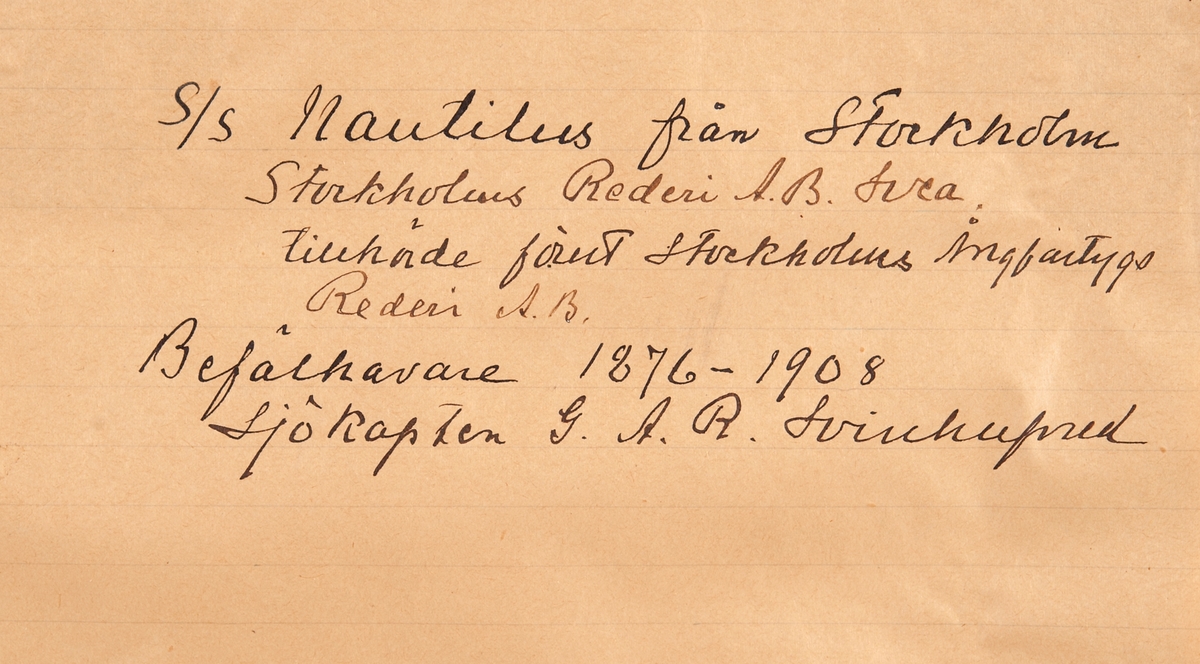 S/s Nautilus från Stockholm
Stockholms Rederi A.B. Svea.
tillhörde först Stockholms Ångfartygs
Rederi A.B.
Befälhavare 1876-1908
Sjökapten G. A. R. Svinhufvud